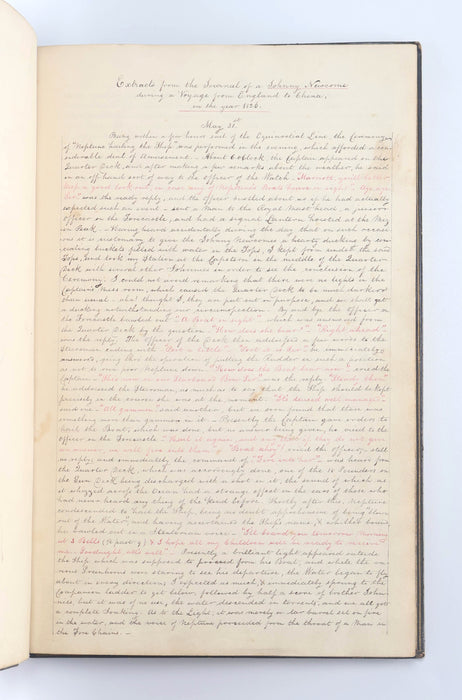 Extracts from the Journal of a Johnny Newcome
during a Voyage from England to China,
in the year 1826.
May 31st
Being within a few hours sail of the Equinoctial Line the Ceremony
of "Neptune hailing the Ship" was performed in the evening, which afforded a con-
siderable deal of Amusement. About 6 oClock the Captain appeared on the
Quarter Deck, and after making a few remarks about the weather, he said
in an off hand sort of way to the officer of the Watch
keep a good look out in case any of Neptune's Boats heave in sight". "Aye aye
Sir" was the ready reply, and the officer bustled about as if he had actually
expected such an event - sent a Man to the Royal Mast head, a junior
officer on the Forecastle, and had a signal Lantern hoisted at the Miz
en Peak. - Having heard accidentally during the day that on such occas-
ions it is customary to give the Johnny Newcomes a hearty ducking by con-
cealing buckets filled with water in the Tops, I kept from under the said
Tops, and took my Station at the Capstern in the middle of the Quarter
Deck with several other Johnnies in order to see the conclusion of the
Ceremony. I could not avoid remarking that there were no lights in the
Captains Mess room, which caused the Quarter Deck to be much darker
than usual - aha! thought I, they are put out on purpose, and we shall get
a ducking notwithstanding our precaution. By and bye the officer on
the Forecastle bawled out "A Boat in sight", which was answered from
the Quarter Deck by the question "How does she bear"? "Right ahead"
was the reply. The officer of the Deck then addressed a few words to the
Steersman ending with "Port a little". "Port it is Sir" he immediately
answered, going thro' the operation of putting the Rudder in such a position
as not to run poor Neptune down. "How does the Boat bear now" cried the
Captain - on our Starboard Bow Sir" was the reply. "Steady then"
he addressed the Steersman, as much as to say that the Ship should be kept
precisely in the course she was at the moment. "It's deused well managed"
said one - "All gammon" said another, but we soon found that there was
something more than gammon in it. - Presently the Captain gave orders to
hail the Boat, which was done, but no answer being given, he cried to the
officer in the Forecastle "Hail it again, and say that if they do not give
an answer, we will fire into them". "Boat ahoy" cried the officer, still
no reply; and immediately the command of "Fire into her" was heard from
the Quarter Deck, which was accordingly done, one of the 18 Pounders on
the Gun Deck being discharged with a shot in it, the sound of which as
it whizzed across the Ocean had a strange effect on the ears of those who
had never heard any thing of the kind before. Shortly after this Neptune
condescended to hail the Ship, being no doubt apprehensive of being blown
out of the Water, and having ascertained the Ship's name, & whither bound,
he bawled out in a Stentorian voice - "I'll board you tomorrow Morning
at 3 Bells I hope all my Children will be ready to receive
me. Goodnight all's well". - Presently a brilliant light appeared outside
the Ship which was supposed to proceed from his Boat, and while the va-
rious Greenhorns were staring to see his departure, the Water began to fly
about in every direction; I expected as much, & immediately sprung to the
Companion ladder to get below, followed by half a score of brother John-
nies, but it was of no use, the water descended in torrents, and we all got
a complete Soaking. As to the Light, it was merely a tar barrel set on fire
in the water, and the voice of Neptune proceeded from the throat of a Man in
the Fore Chains. -